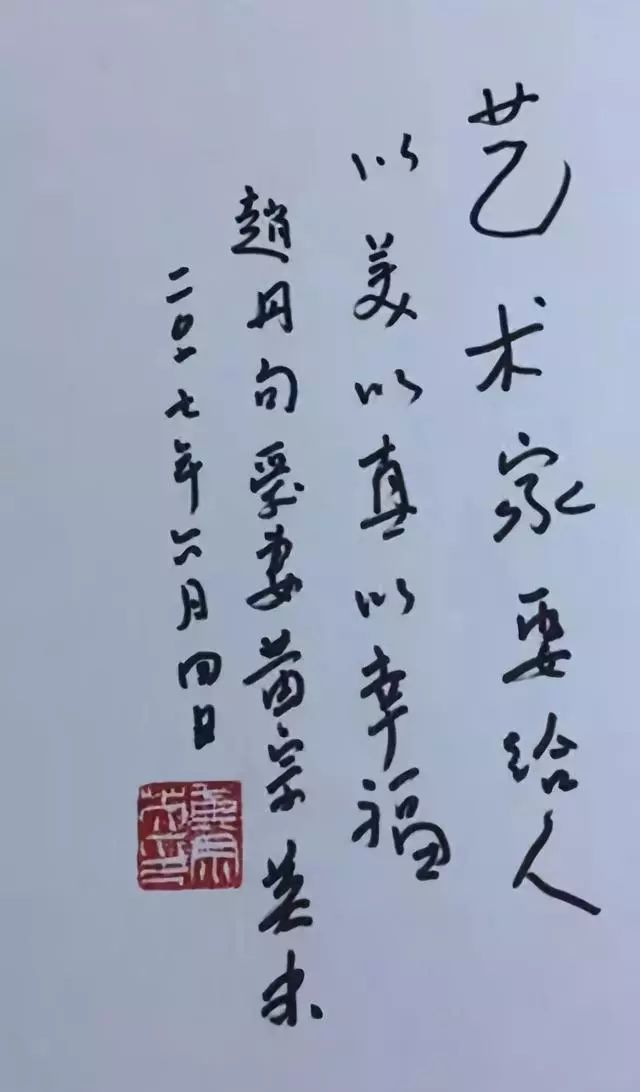 艺术家要给人
以美以真以幸福
趙丹句 爱妻黄宗英书
二〇一七年六月四日
黄宗英印